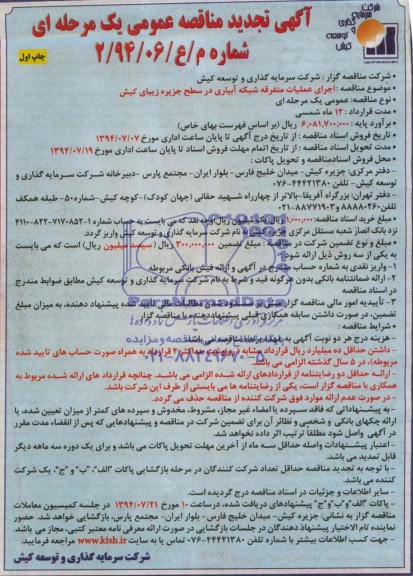 شرکت
سرمایه
گذاری
و توسعه
کیش
آگهی تجدید مناقصه عمومی یک مرحله ای
شماره م/ع/۲/۹۴/۰۶
چاپ اول
• شرکت مناقصه گزار: شرکت سرمایه گذاری و توسعه کیش
• موضوع مناقصه: اجرای عملیات متفرقه شبکه آبیاری در سطح جزیره زیبای کیش
• نوع مناقصه: عمومی یک مرحله ای
• مدت قرارداد: ۱۲ ماه شمسی
• برآورد پایه: ۶,۰۸۱,۷۰۰,۰۰۰ ریال (بر اساس فهرست بهای خاص)
• تاریخ فروش اسناد مناقصه: از تاریخ درج آگهی تا پایان ساعت اداری مورخ ۱۳۹۴/۰۷/۰۷
• مدت تحویل اسناد مناقصه: از تاریخ اتمام مهلت فروش اسناد تا پایان ساعت اداری مورخ ۱۳۹۴/۰۷/۱۹
• محل فروش اسناد مناقصه و تحویل پاکات:
- دفتر مرکزی: جزیره کیش- میدان خلیج فارس- بلوار ایران- مجتمع پارس -دبیرخانه شرکت سرمایه گذاری و
توسعه کیش- تلفن ۴۴۴۲۱۳۸۰-۰۷۶
- دفتر تهران: بزرگراه آفریقا-بالاتر از چهارراه شهید حقانی (جهان کودک) -کوچه کیش-شماره۵۰- طبقه همکف
-تلفن ۸۸۸۸۰۲۶۰ و ۸۸۷۷۱۹۰۳-۰۲۱
• مبلغ خرید اسناد مناقصه: ۱,۰۰۰,۰۰۰ ریال (یک میلیون ریال) وجه نقد که می بایست به حساب شماره ۱-۷۱۷۰۸۵۲-۸۲۲-۴۱۱۰
نزد بانک انصار شعبه مستقل مرکزی جزیره کیش به نام شرکت سرمایه گذاری و توسعه کیش واریز گردد.
• مبلغ و نوع تضمین شرکت در مناقصه: مبلغ تضمین ۳۰۰,۰۰۰,۰۰۰ ریال (سیصد میلیون ریال) است که می بایست
به یکی از سه روش ذیل ارائه شود:
۱- واریز نقدی به شماره حساب مندرج در آگهی و ارائه فیش بانکی مربوطه
۲- ارائه ضمانتنامه بانکی بدون هرگونه قید و شرط به نام شرکت سرمایه گذاری و توسعه کیش مطابق ضوابط مندرج
در اسناد مناقصه
۳- تأییدیه امور مالی مناقصه گزار مبنی بر مطالبات مالی تأیید شده پیشنهاد دهنده، به میزان مبلغ
تضمین، در صورت داشتن سابقه همکاری قبلی پیشنهاد دهنده با مناقصه گزار
• شرایط مناقصه:
- هزینه درج هر دو نوبت آگهی به عهده برنده مناقصه می باشد.
- داشتن حداقل ده میلیارد ریال قرارداد مشابه در قالب حداکثر قرارداد به همراه صورت حساب های تایید شده
مربوطه)، در ۵ سال گذشته الزامی می باشد.
- ارائه حداقل دو رضایتنامه از قراردادهای ارائه شده الزامی می باشد. چنانچه قرارداد های ارائه شده مربوط به
همکاری با مناقصه گزار است، یکی از رضایتنامه ها می بایستی از طرف این شرکت باشد.
- در صورت عدم ارائه موارد فوق شرکت کننده از مناقصه حذف می گردد.
- به پیشنهاداتی که فاقد سپرده یا امضاء غیر مجاز، مشروط، مخدوش و سپرده های کمتر از میزان تعیین شده، یا
ارائه چکهای بانکی و شخصی و نظائر آن برای تضمین شرکت در مناقصه و پیشنهادهایی که پس از انقضاء مدت مقرر
در آگهی واصل شود مطلقاً ترتیب اثر داده نخواهد شد.
- اعتبار پیشنهادات واصله حداقل سه ماه از آخرین مهلت تحویل پاکات می باشد و برای یک دوره سه ماهه دیگر
قابل تمدید می باشد.
- با توجه به تجدید مناقصه حداقل تعداد شرکت کنندگان در مرحله بازگشایی پاکات "الف"، "ب" و "ج"، یک شرکت
کننده می باشد.
- سایر اطلاعات و جزئیات در اسناد مناقصه درج گردیده است.
- پاکات "الف" و "ب" و "ج" پیشنهادهای دریافت شده، درساعت ۱۰ مورخ ۱۳۹۴/۰۷/۲۱ در جلسه کمیسیون معاملات
مناقصه گزار به نشانی: جزیره کیش- میدان خلیج فارس- بلوار ایران- مجتمع پارس، بازگشایی خواهد شد. حضور
نماینده تام الاختیار پیشنهاد دهندگان در جلسات بازگشایی در صورت ارائه معرفی نامه معتبر کتبی، مجاز می باشد.
- جهت کسب اطلاعات بیشتر با شماره تلفن ۴۴۴۲۱۳۸۰-۰۷۶ تماس یا به سایت www.kish.ir مراجعه فرمایید.
شرکت سرمایه گذاری و توسعه کیش